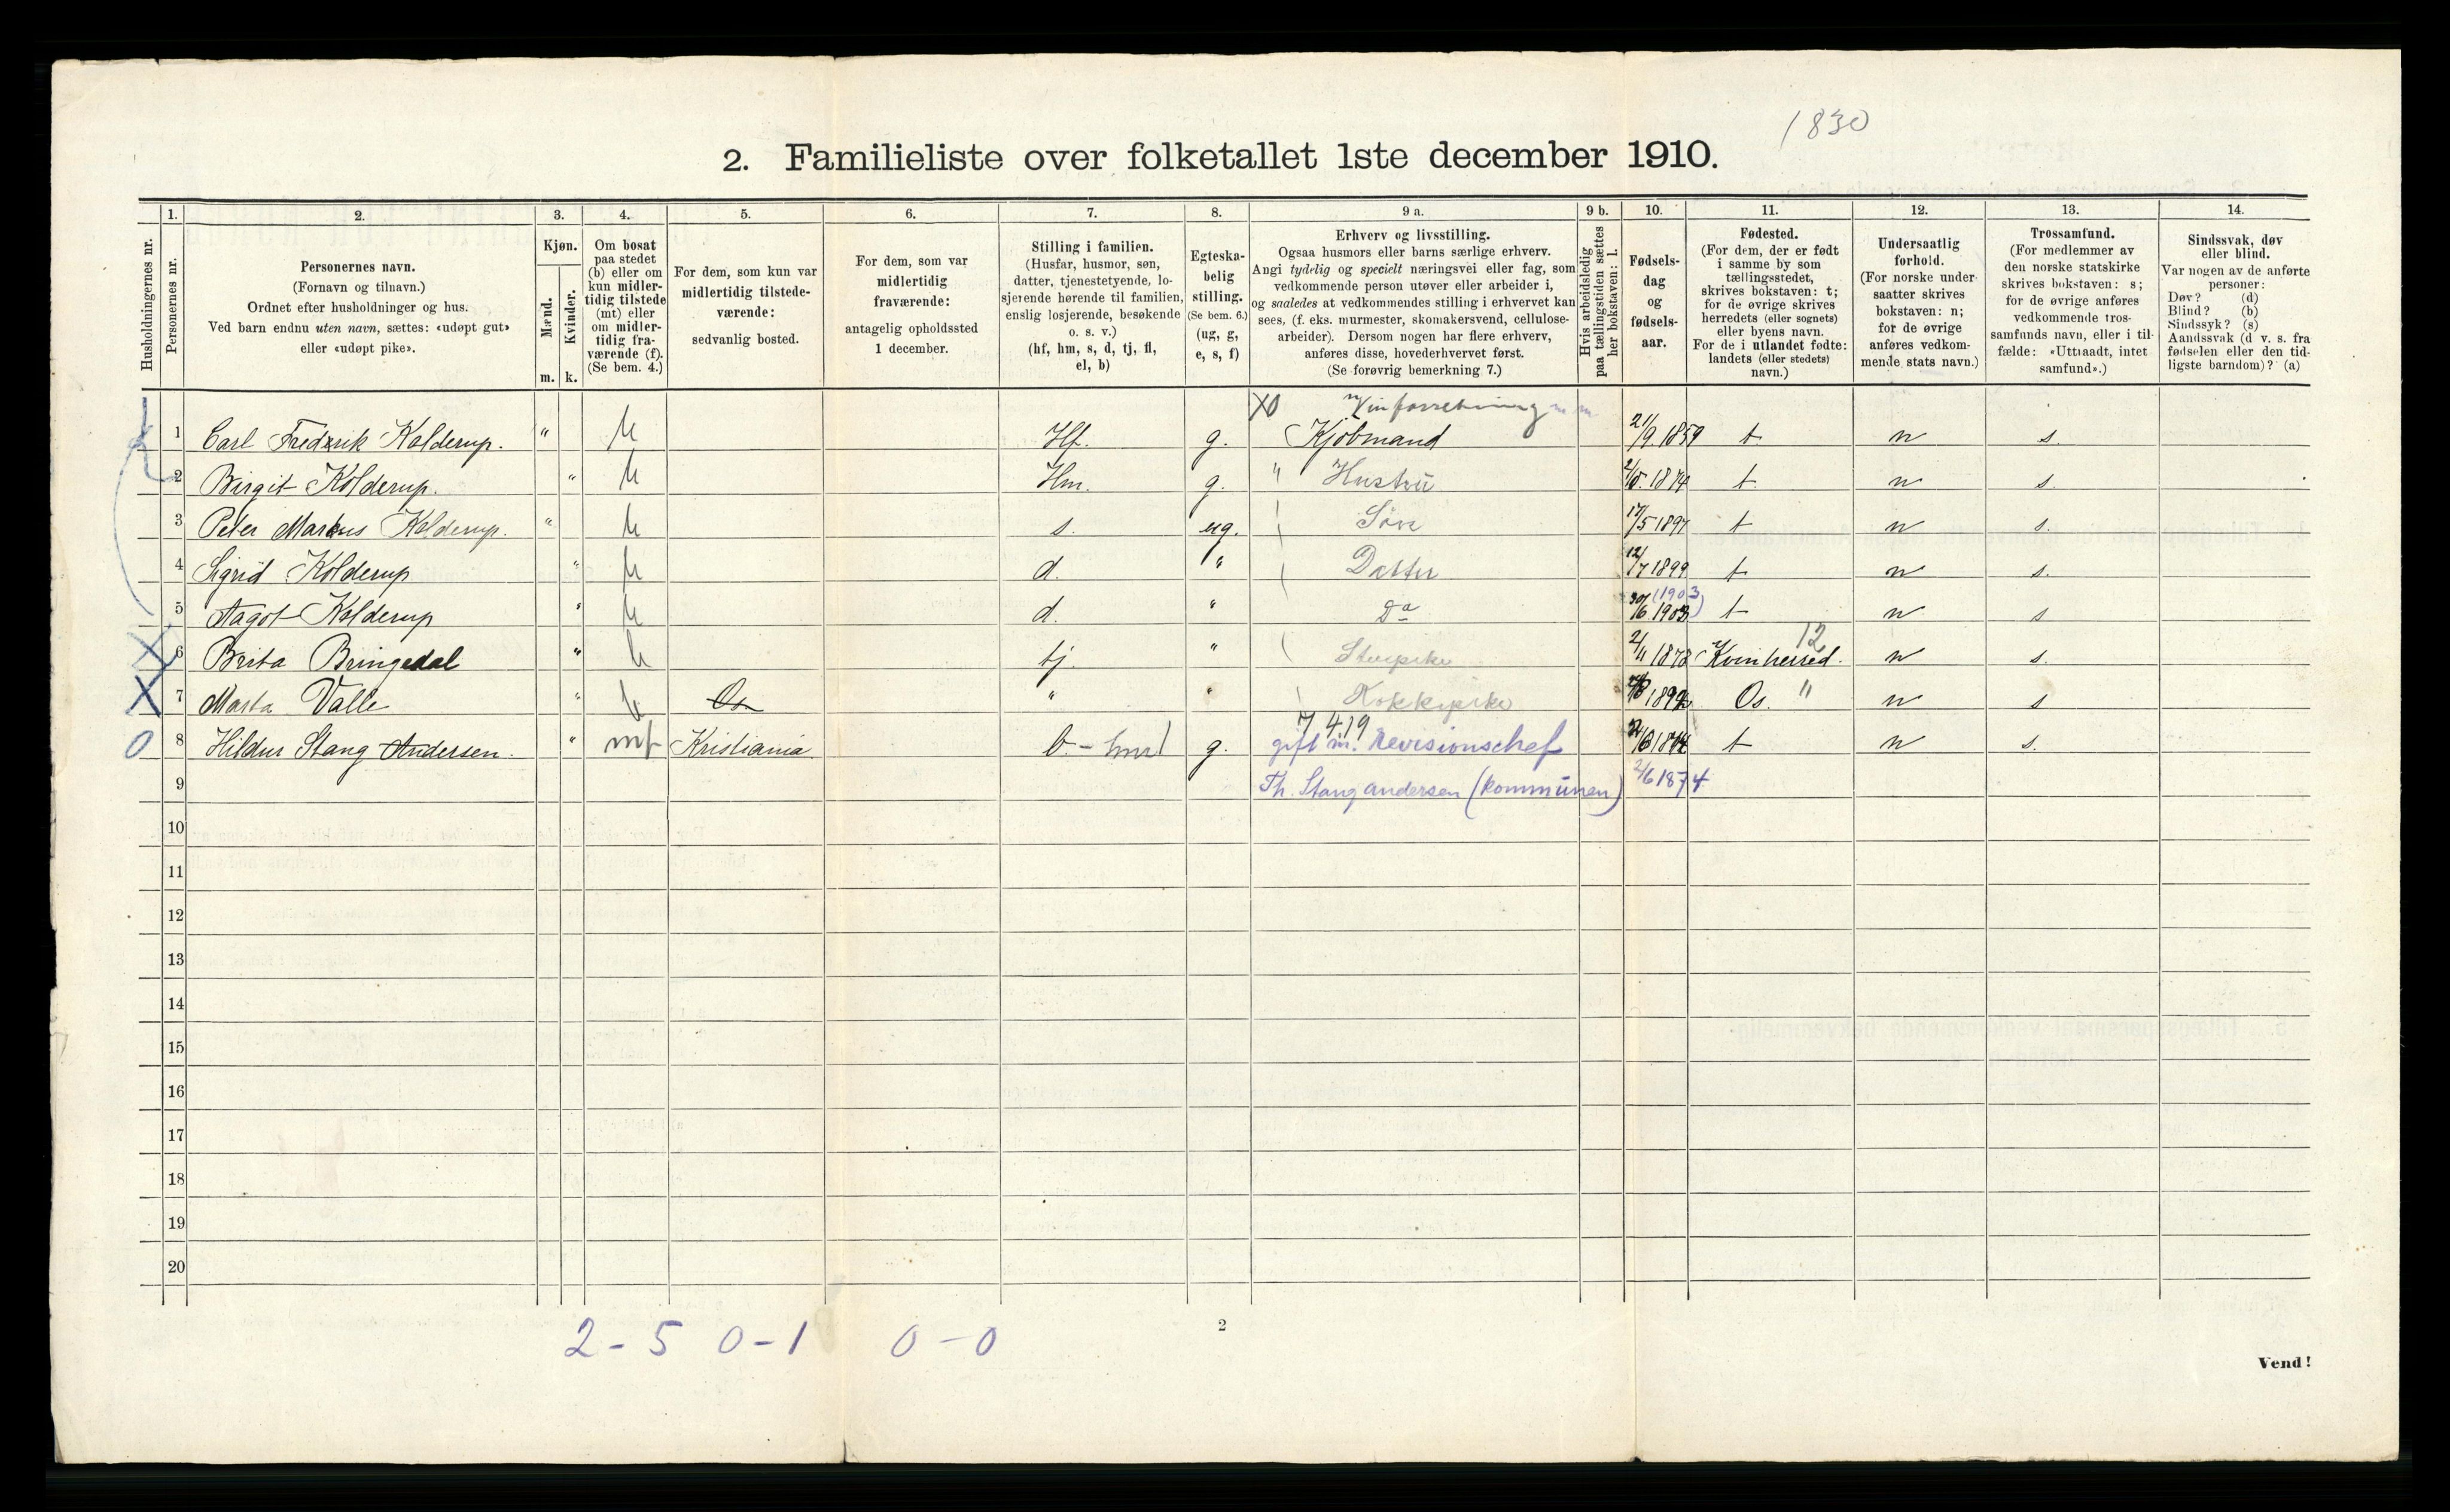 1830
2. Familieliste over folketallet 1ste december 1910.
Husholdningernes nr.
1. Personernes nr.
2. Personernes navn.
(Fornavn og tilnavn.)
Ordnet efter husholdninger og hus.
Ved barn endnu uten navn, sættes: «udøpt gut»
eller «udøpt pike».
3. Kjøn.
Mænd. m.
Kvinder. k.
4. Om bosat
paa stedet
(b) eller om
kun midler-
tidig tilstede
(mt) eller
om midler-
tidig fra-
værende (f).
(Se bem. 4.)
5. For dem, som kun var
midlertidig tilstede-
værende:
sedvanlig bosted.
6. For dem, som var
midlertidig
fraværende:
antagelig opholdssted
1 december.
7. Stilling i familien.
(Husfar, husmor, søn,
datter, tjenestetyende, lo-
sjerende hørende til familien,
enslig losjerende, besøkende
o. s. v.)
(hf, hm, s, d, tj, fl,
el, b)
8. Egteska-
belig
stilling.
(Se bem. 6.)
(ug, g,
e, s, f)
9 a. Erhverv og livsstilling.
Ogsaa husmors eller barns særlige erhverv.
Angi tydelig og specielt næringsvei eller fag, som
vedkommende person utøver eller arbeider i,
og saaledes at vedkommendes stilling i erhvervet kan
sees, (f. eks. murmester, skomakersvend, cellulose-
arbeider). Dersom nogen har flere erhverv,
anføres disse, hovederhvervet først.
(Se forøvrig bemerkning 7.)
9 b. Hvis arbeidsledig
paa tællingstiden sættes
her bokstaven: l.
10. Fødsels-
dag
og
fødsels-
aar.
11. Fødested.
(For dem, der er født
i samme by som
tællingsstedet,
skrives bokstaven: t;
for de øvrige skrives
herredets (eller sognets)
eller byens navn.
For de i utlandet fødte:
landets (eller stedets)
navn.)
12. Undersaatlig
forhold.
(For norske under-
saatter skrives
bokstaven: n;
for de øvrige
anføres vedkom-
mende stats navn.)
13. Trossamfund.
(For medlemmer av
den norske statskirke
skrives bokstaven: s;
for de øvrige anføres
vedkommende tros-
samfunds navn, eller i til-
fælde: «Uttraadt, intet
samfund».)
14. Sindssvak, døv
eller blind.
Var nogen av de anførte
personer:
Døv? (d)
Blind? (b)
Sindssyk? (s)
Aandssvak (d v. s. fra
fødselen eller den tid-
ligste barndom)? (a)
X0 Vinforretning m m
1 Carl Fredrik Kolderup. " b Hf. g. Kjøbmand 21/9. 1859 t n s.
2 Birgit Kolderup. " b Hm. g. " Hustru 1874 t. n s.
3 Peter Markus Kolderup. " b s. ug. Søn 17/5 1897 t n s.
4 Sigrid Kolderup " b d. " Datter 12/7 1899 t n s.
(1903)
5 Aagot Kolderup " b d. " Do 30/6 1903 t n s
12
6 Brita Bringedal " b tj. " Stuepike 2/11 1878 Kvinherred. n s.
7 Marta Valle " b Os " " Kokkepike 1892 Os. " n s
7 419
8 Hildur Stang Andersen. " mt Kristiania. b. - g. gift m. Revisionschef 1874 t n s.
9 Th. Stang Andersen (kommunen) 2/6 1874
10
11
12
13
14
15
16
17
18
19
20
2 - 5 0 - 1 0 - 0
2
Vend!